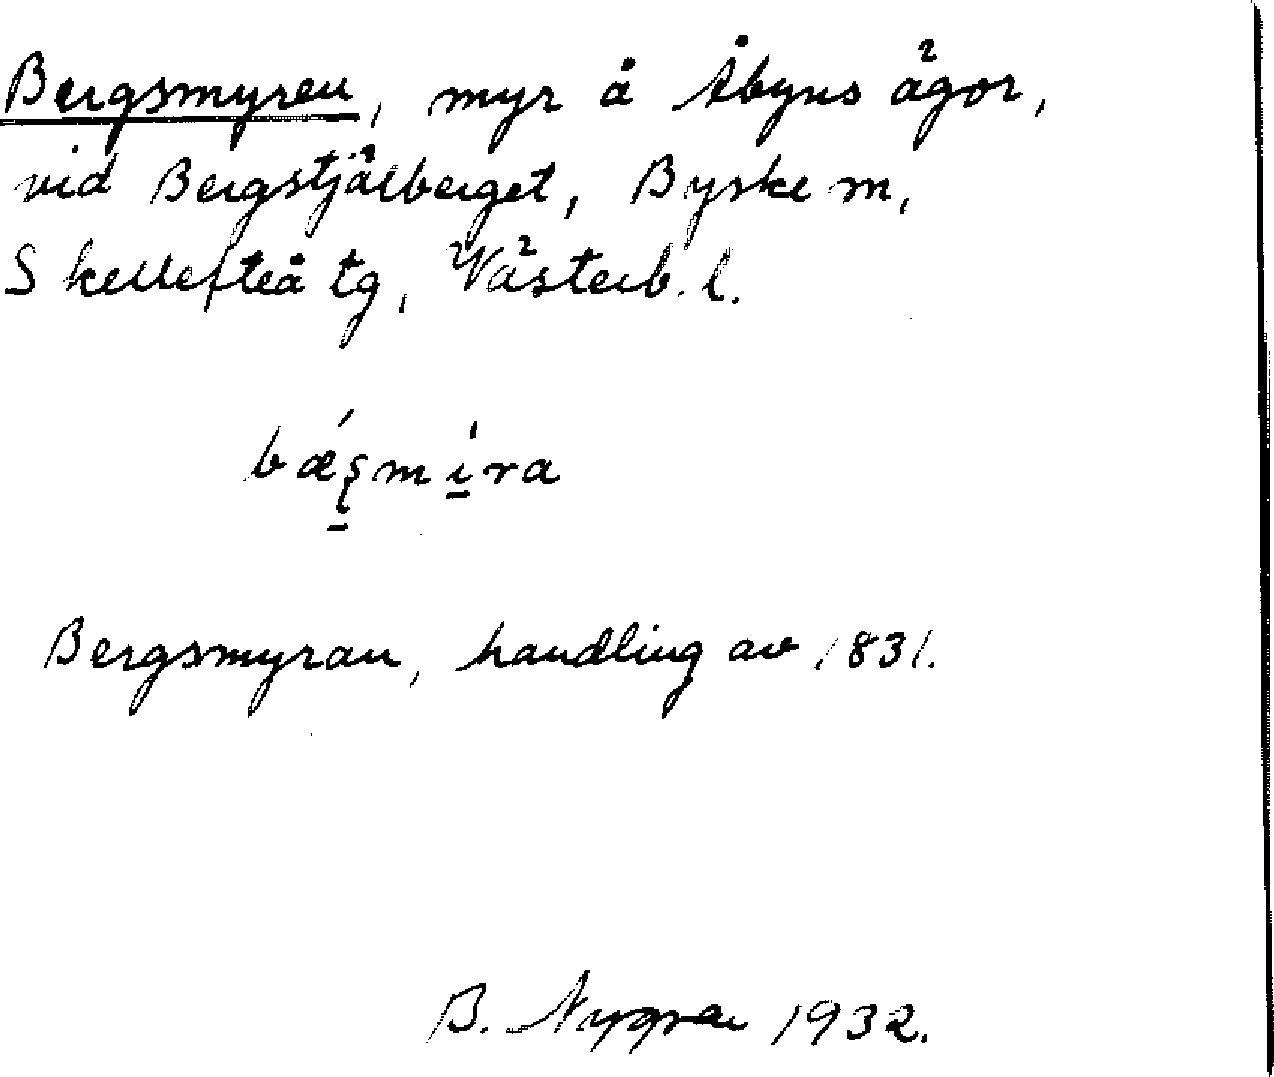 Bergsmyren, myr å Åbyns ägor,
vid Bergstjälberget, Byske sn,
Skellefteå tg, Västerb. l.
Bergsmyran, handling av 1831.
B. Nygren 1932.